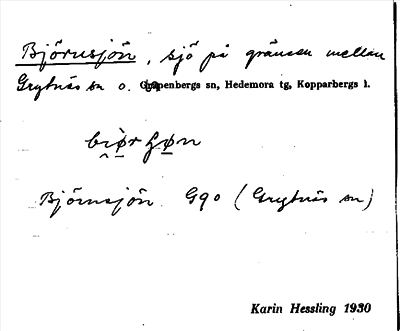 Björnsjön, sjö på gränsen mellan
Grytnäs sn o. Garpenbergs sn, Hedemora tg, Kopparbergs l.
Björnsjön. G90 (Grytnäs sn)
Karin Hessling 1930